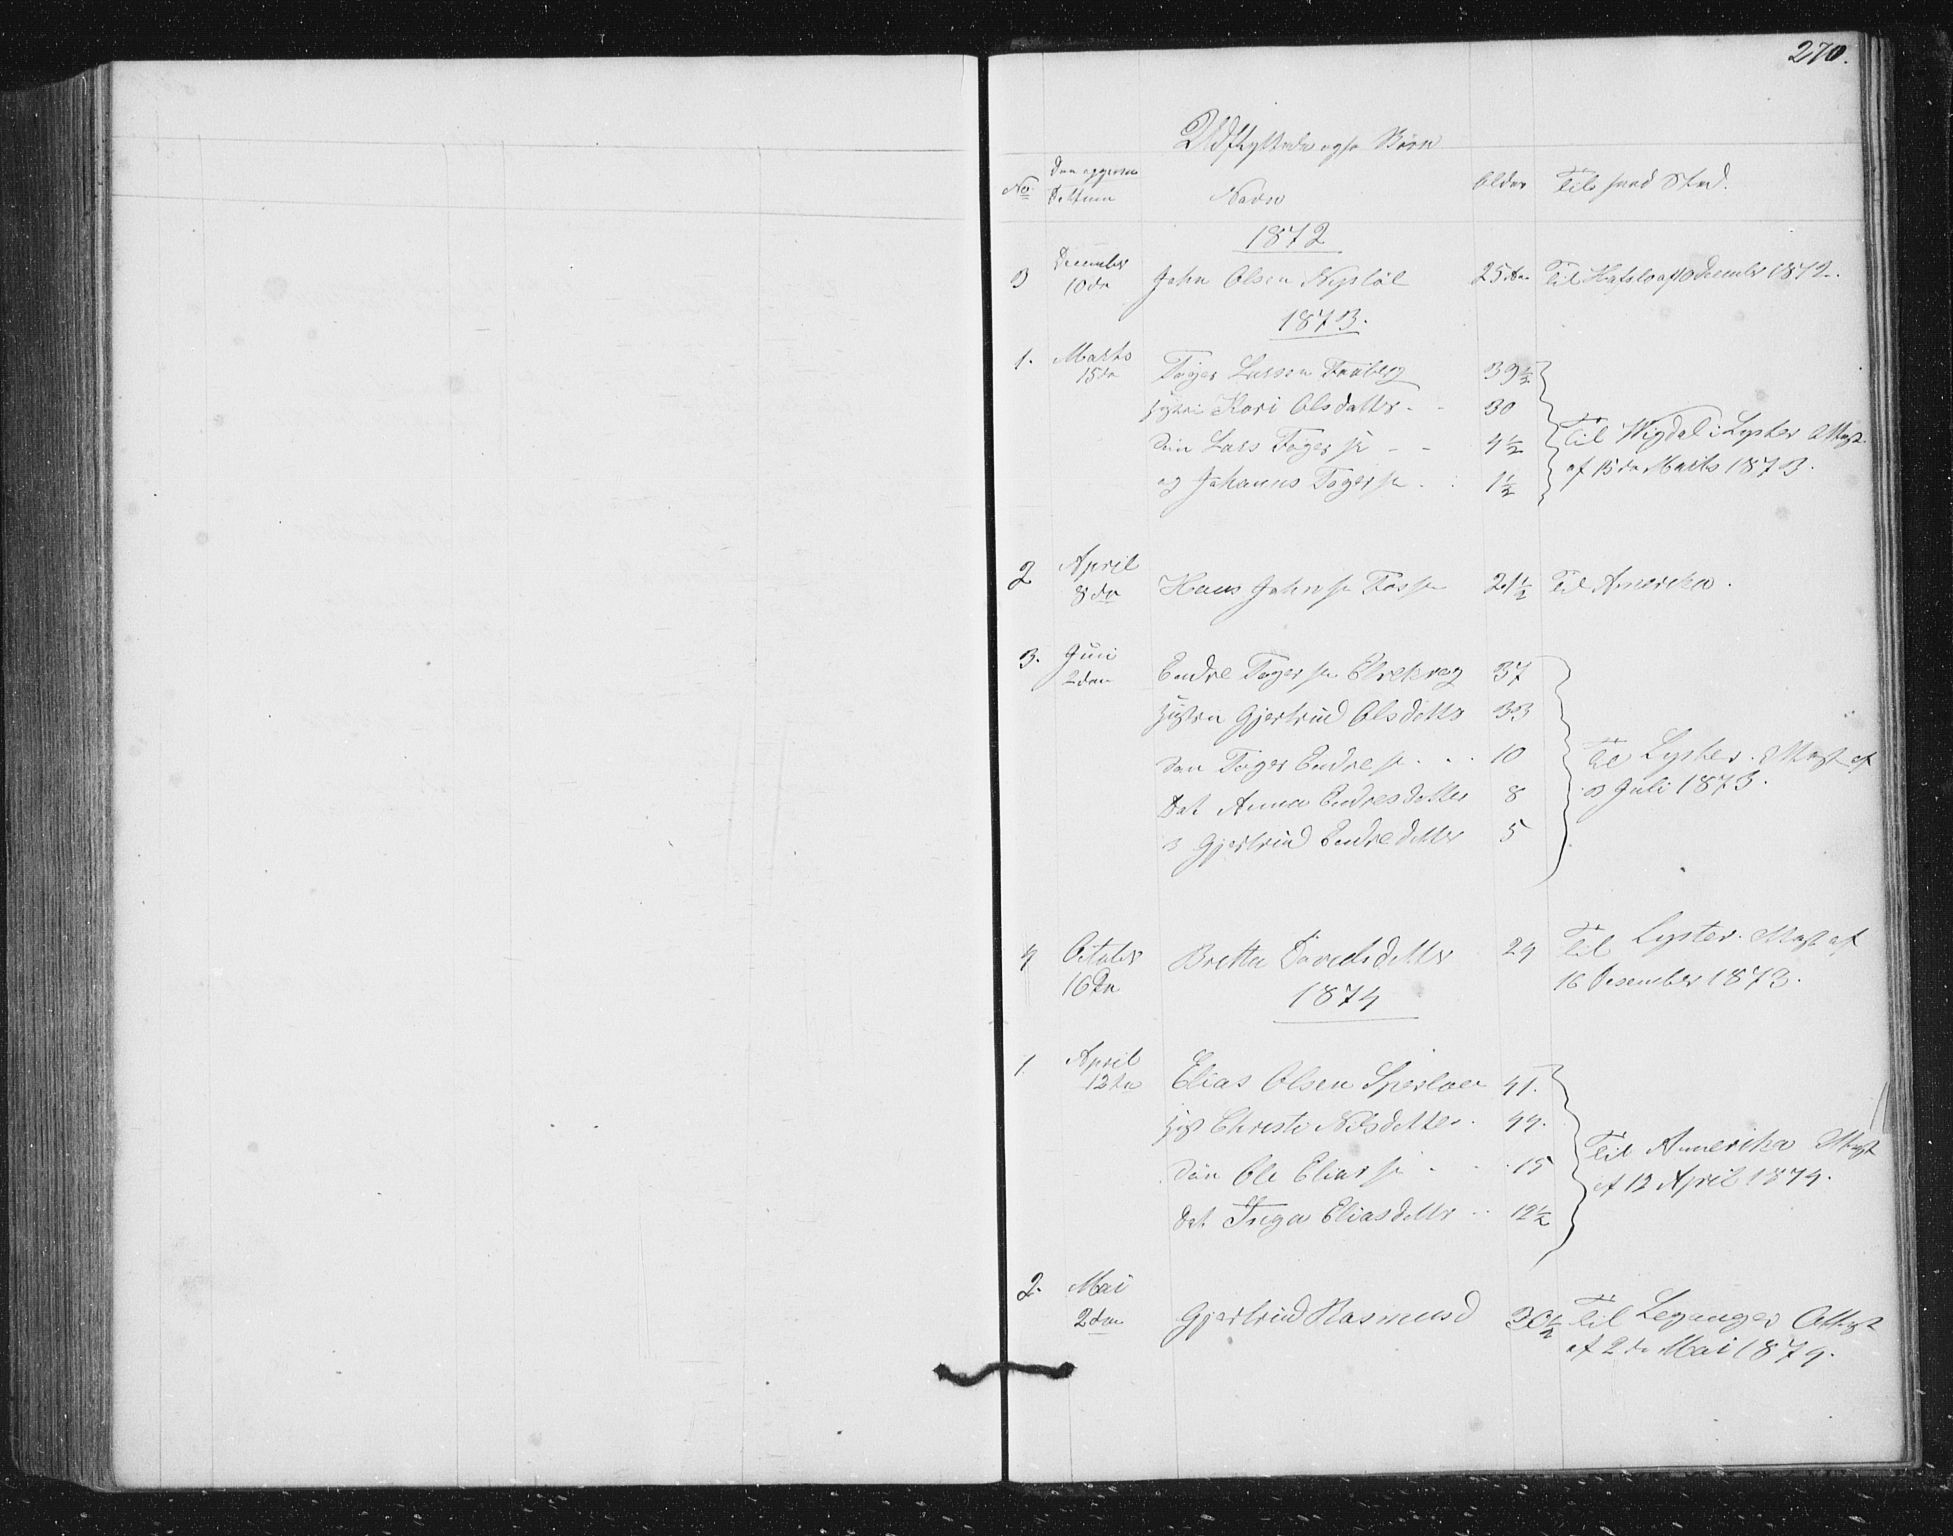 270.
Udflyttede ogsaa Børn
No. Den opgivne Dattum Navn Alder Til hvad Sted.
1872
3 December 10de John Olsen Nystøl 25 Aar Til Hafslo af 10 December 1872.
1873.
1. Marts 15de Tøger Larsen Faaberg 39½
Hustru Kari Olsdatter - - 30
Søn Lars Tøgers - - 4½ Til Wigdal i Lyster Attest
og Johannes Tøgers . : 1½ af 15de Marts 1873.
2 April 8de Hans Johns Fosse 21½ Til Amerika.
3. Juni 2den Endre Tøgers 37
Hustru Gjertrud Olsdatter 33
Søn Tøger Endres . . . 10 Til Lyster. Attest af
Dat Anna Endresdatter 8 Juli 1873.
Gjertrud Endredatter 5
4 October 16de Brettu Davidsdatter 29 Til Lyster. Attest af
16 Desember 1873.
1874
1. April 12te Elias Olsen Sperloen 41.
Hust Christi Nilsdatter. 44.
Søn Ole Elias . . . 15 Til Amerika Attest
af 12 April 1874.
Dat Inga Eliasdatter .. 12½
2. Mai 2den Gjertrud Rasmusd 30½ Til Leganger Attest
af 2de Mai 1874.